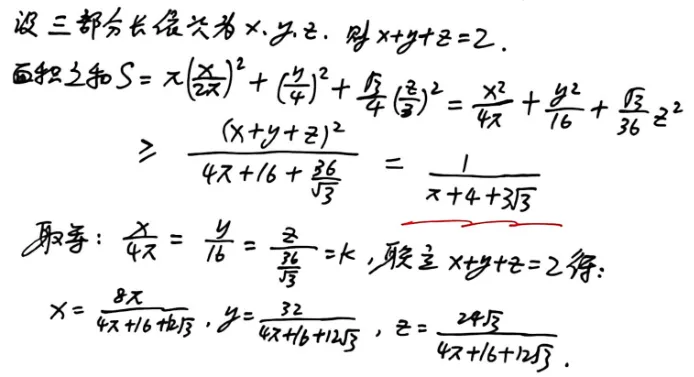 设三部分长依次为x.y.z. 则x+y+z=2.
面积之和S=π(x/2π)²+(y/4)²+√3/4(z/3)²=x²/4π+y²/16+√3/36 z²
≥ (x+y+z)²/(4π+16+36/√3) = 1/(π+4+3√3)
取等: x/4π=y/16=z/(36/√3)=k,联立x+y+z=2得:
x=8π/(4π+16+12√3), y=32/(4π+16+12√3), z=24√3/(4π+16+12√3).